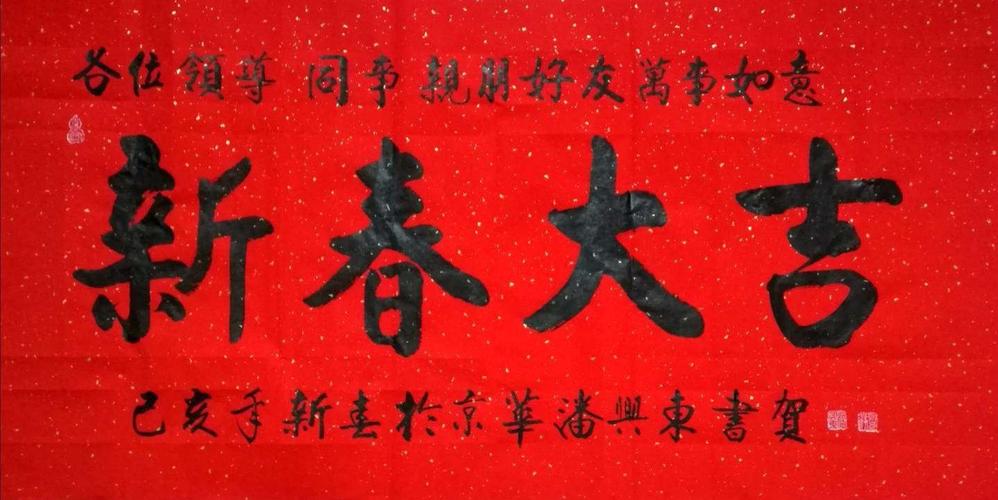 各位領導 同事 親朋好友萬事如意
新春大吉
己亥年新春於京華潘興東書賀